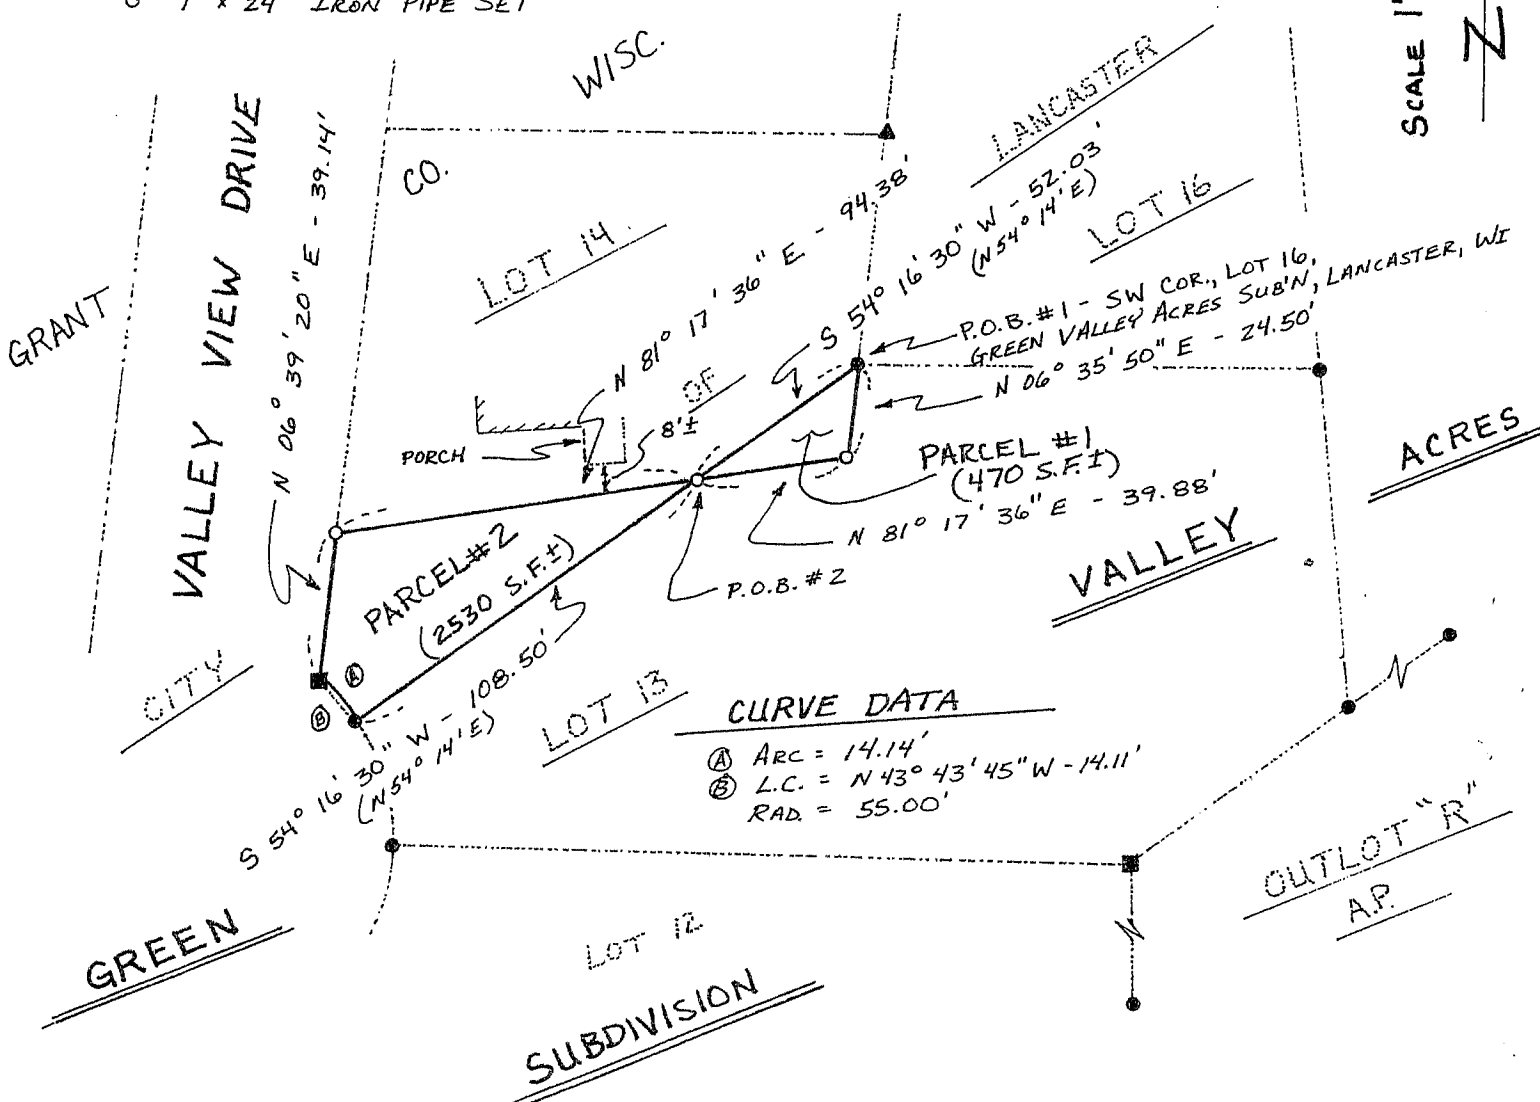 1" x 24" IRON PIPE SET
SCALE 1"
N
WISC.
LANCASTER
CO.
GRANT
VALLEY VIEW DRIVE
N 06° 39' 20" E - 39.14'
LOT 14
N 81° 17' 36" E - 94.38'
S 54° 16' 30" W - 52.03'
(N 54° 14' E)
LOT 16
P.O.B. #1 - SW COR., LOT 16,
GREEN VALLEY ACRES SUB'N, LANCASTER, WI
N 06° 35' 50" E - 24.50'
OF
8'±
PORCH
PARCEL #1
(470 S.F.±)
N 81° 17' 36" E - 39.88'
ACRES
PARCEL #2
(2530 S.F.±)
P.O.B. #2
VALLEY
CITY
A
B
S 54° 16' 30" W - 108.50'
(N 54° 14' E)
LOT 13
CURVE DATA
A ARC = 14.14'
B L.C. = N 43° 43' 45" W - 14.11'
RAD. = 55.00'
OUTLOT "R"
A.P.
GREEN
LOT 12
SUBDIVISION